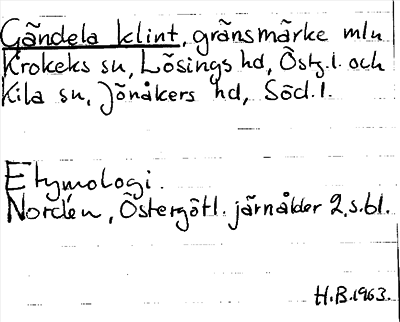 Gändela klint, gränsmärke mln
Krokeks sn, Lösings hd, Östg.l. och
Kila sn, Jönåkers hd, Söd.l.
Etymologi.
Nordén, Östergötl. järnålder 2, s. 61.
H.B. 1963.